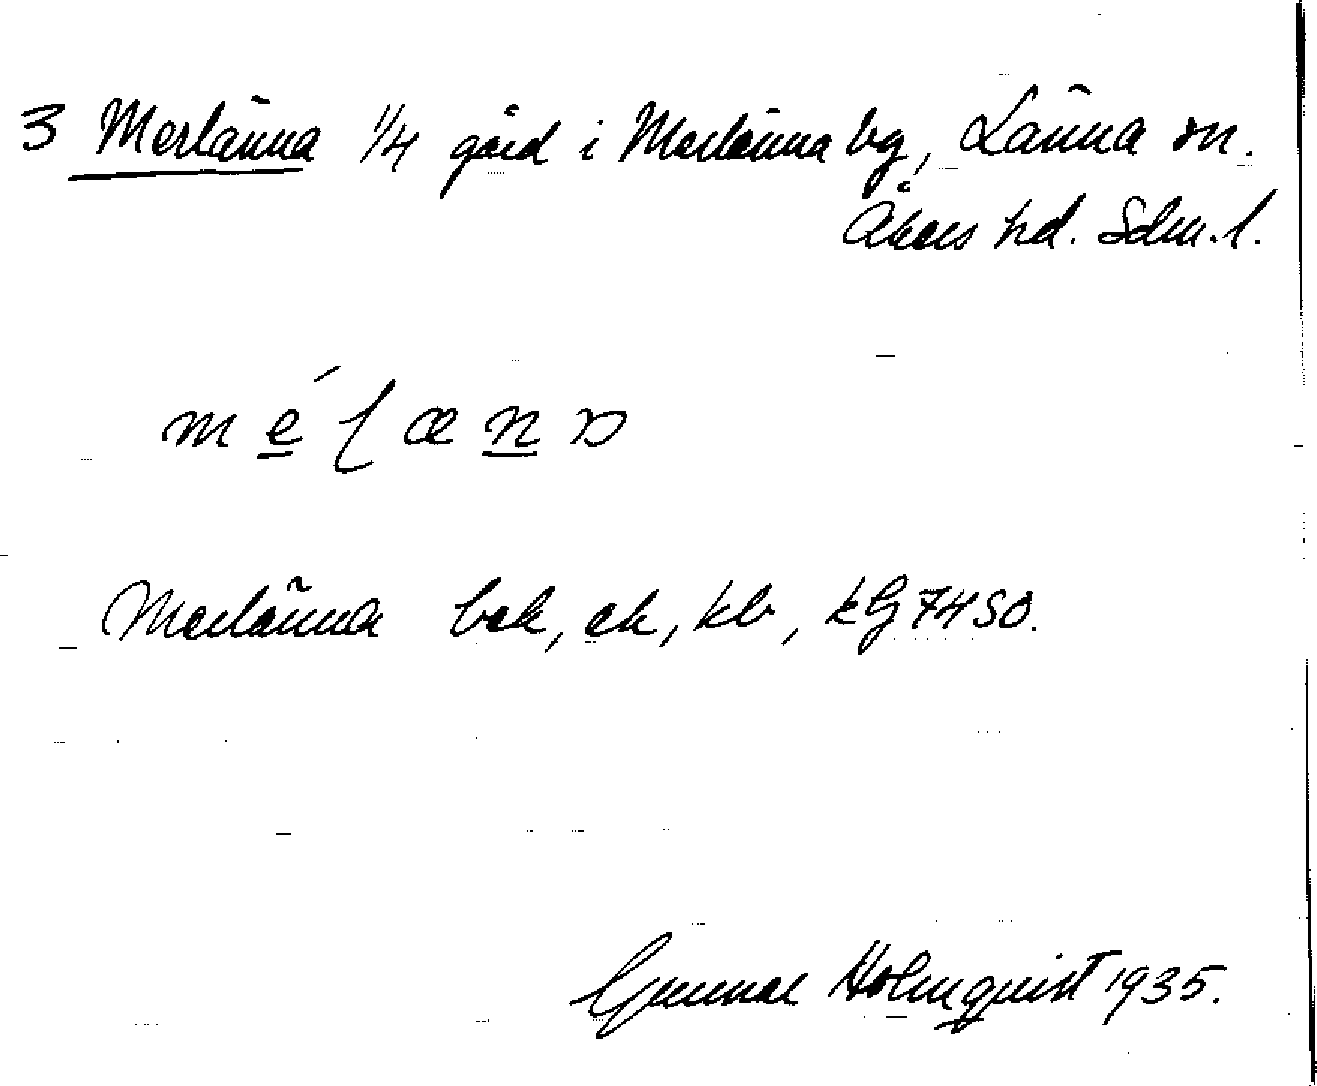 3 Merlänna 1/4 gård i Merlänna by, Länna sn.
Åkers hd. Sdm. l.
Merlänna bok, ek, kb, kG 7450.
Gunnar Holmquist 1935.